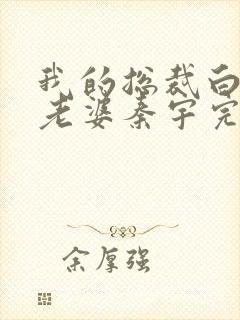 我的总裁白
老婆秦宇完
余厚强